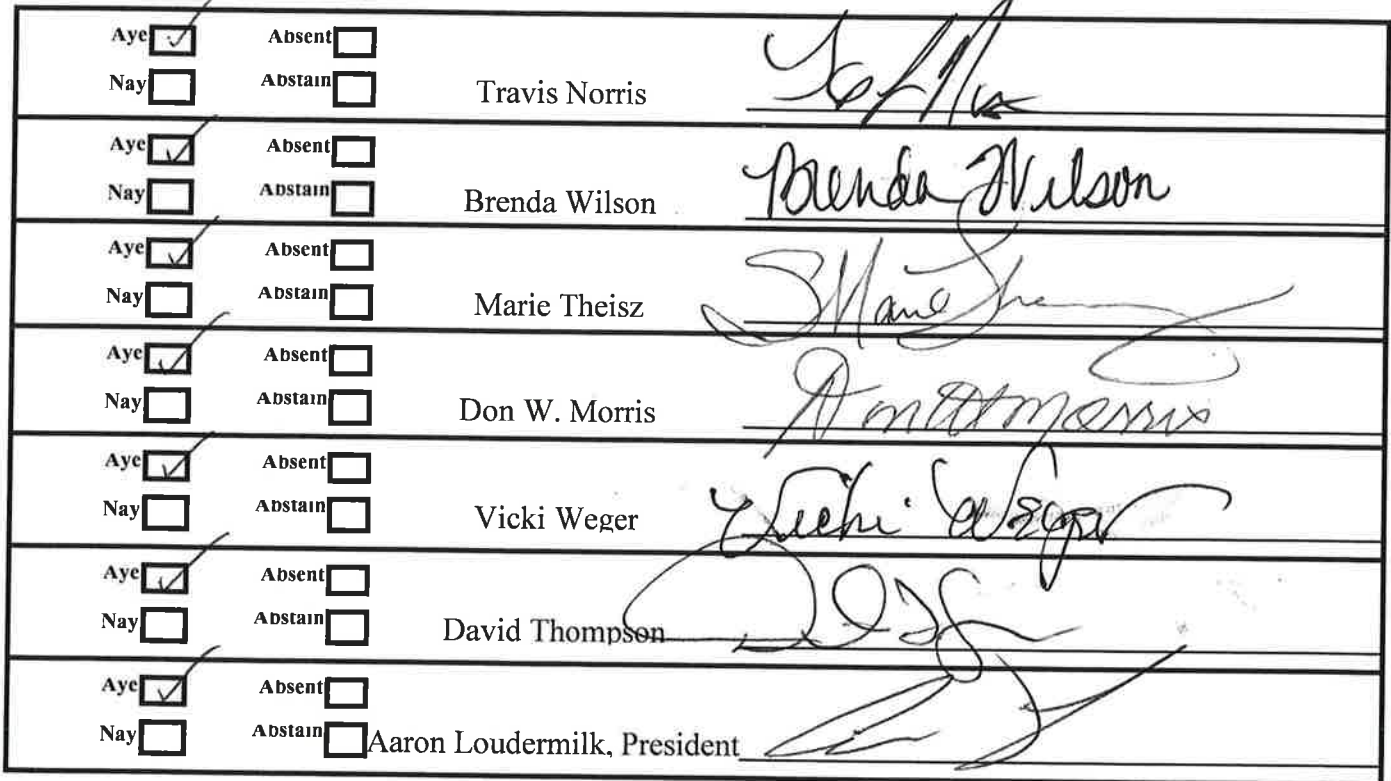 Aye ✓ Absent
Nay Abstain Travis Norris
Aye ✓ Absent
Nay Abstain Brenda Wilson Brenda Wilson
Aye ✓ Absent
Nay Abstain Marie Theisz S Marie
Aye ✓ Absent
Nay Abstain Don W. Morris Don W Morris
Aye ✓ Absent
Nay Abstain Vicki Weger Vicki Weger
Aye ✓ Absent
Nay Abstain David Thompson
Aye ✓ Absent
Nay Abstain Aaron Loudermilk, President